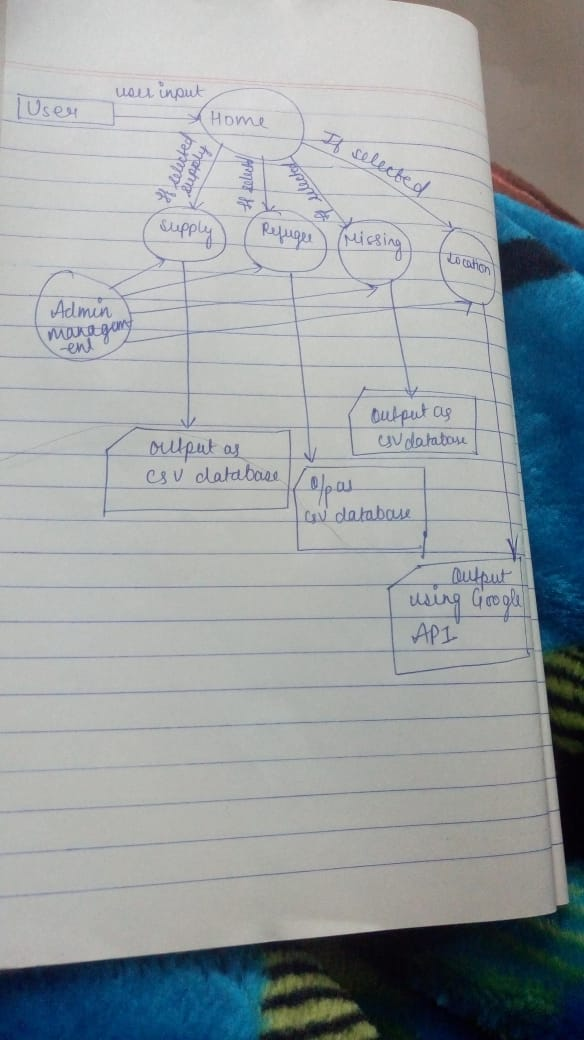 user input
User
Home
If selected
supply
If select
If select
If selected
Supply
Refugee
Missing
Location
Admin
managem
-ent
output as
csv database
O/p as
csv database
output as
csv database
Output
using Google
API